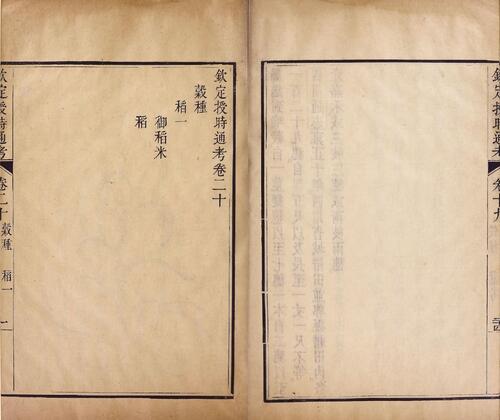 欽定授時通考
卷十九
欽定授時通考卷二十
穀種
稻一
御稻米
稻
欽定授時通考
卷二十 穀種 稻一